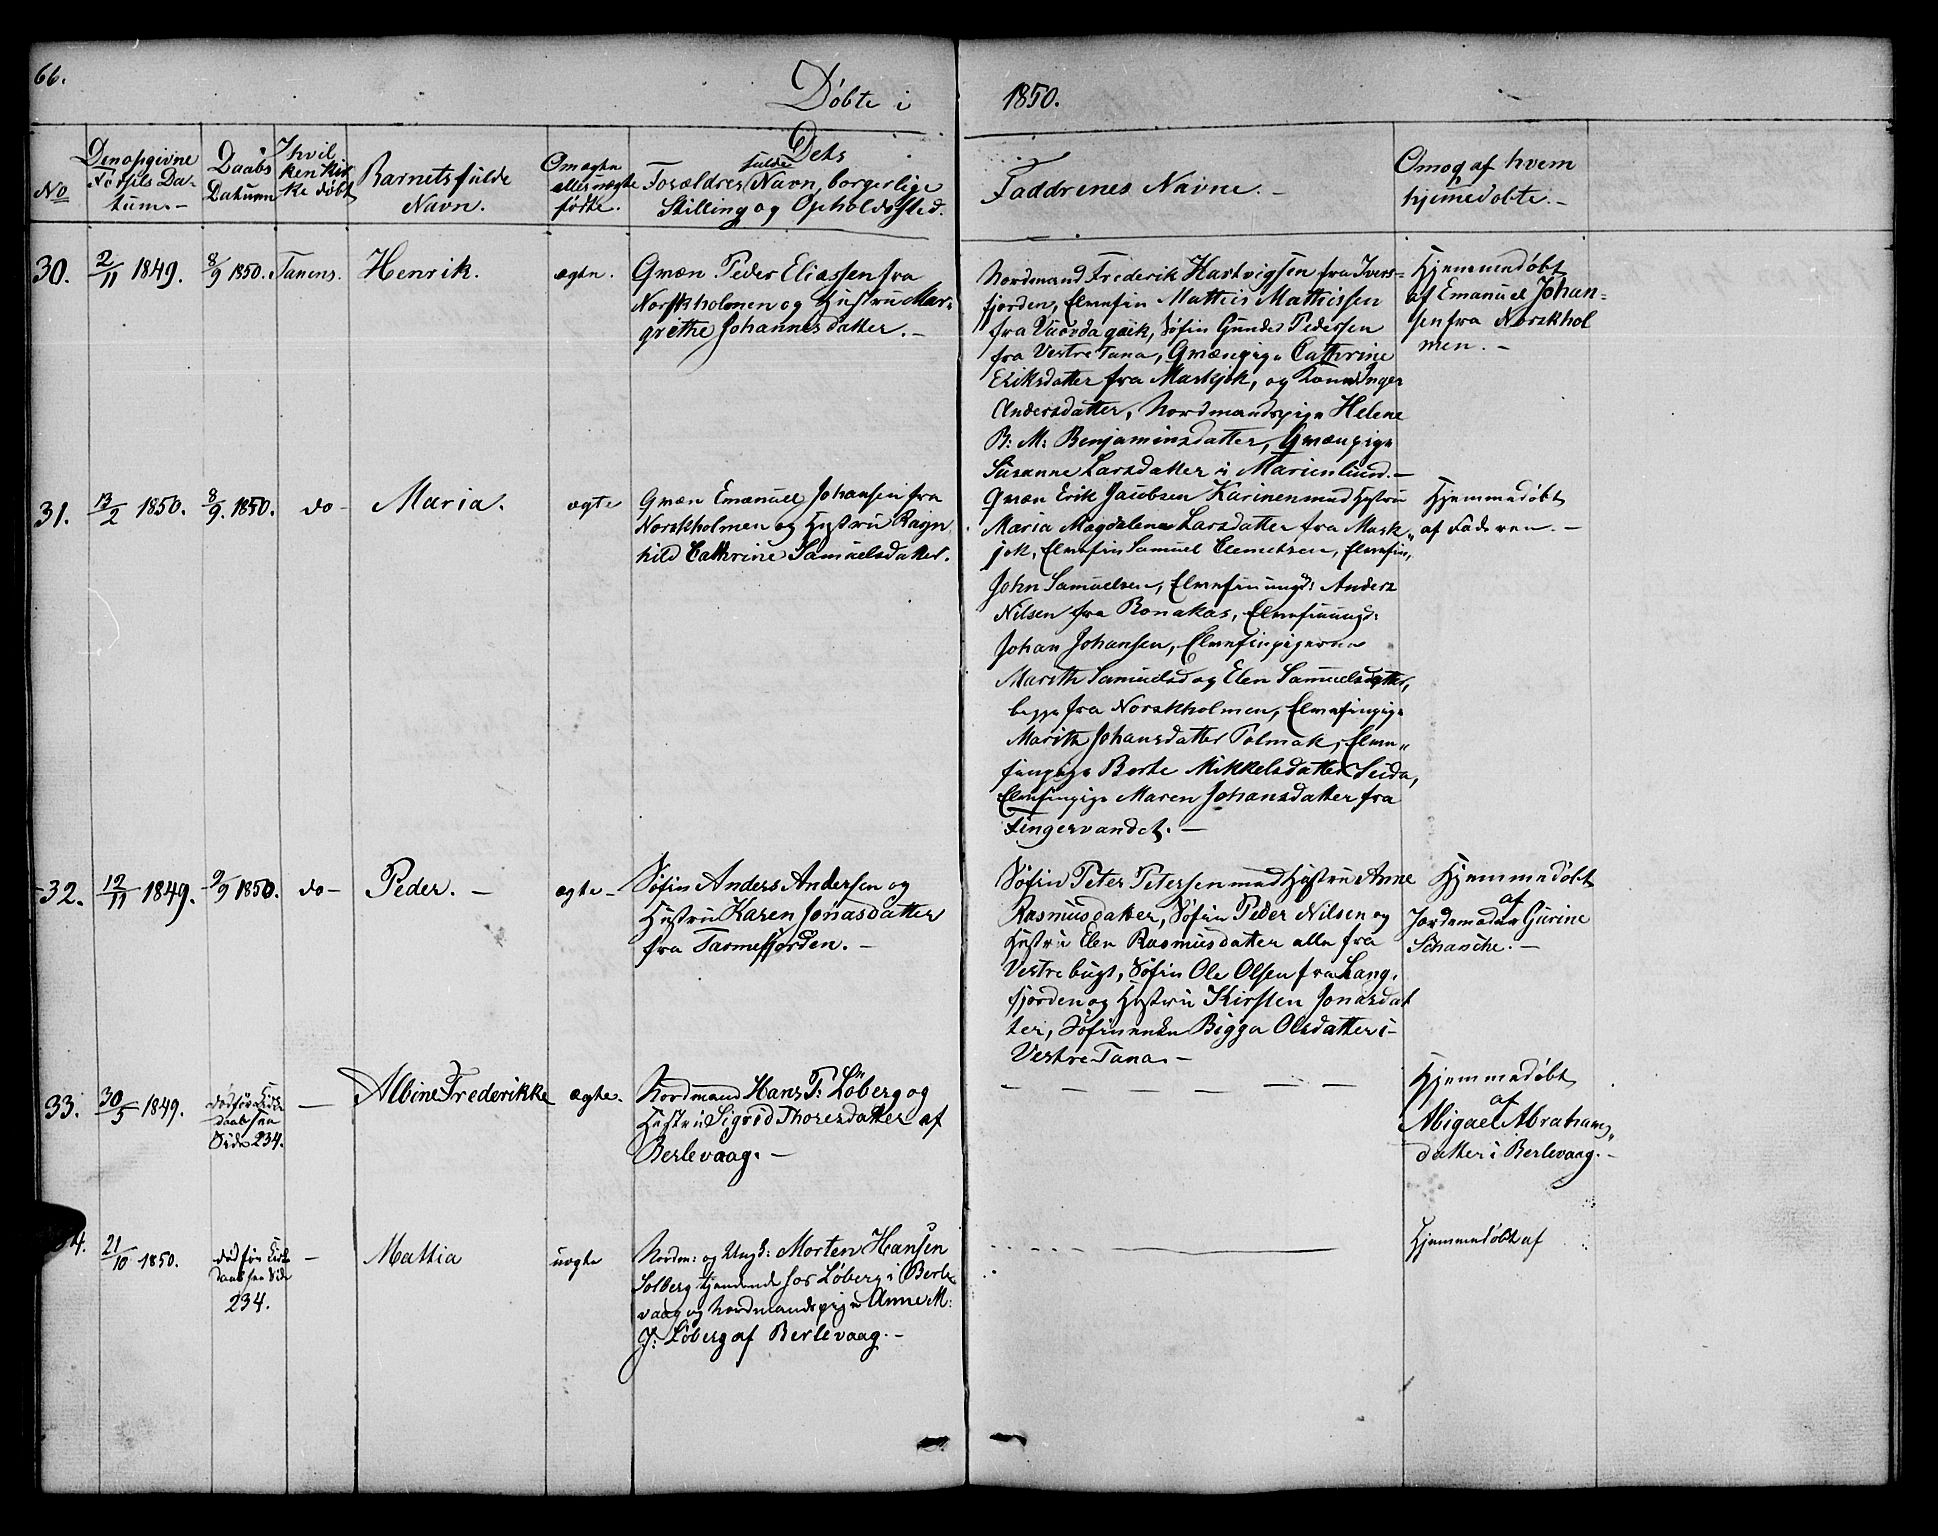 66.
Døbte i 1850.
No
Den opgivne
Fødsels Da-
tum.-
Daabs
Datum
I hvil
ken Kir
ke døbt
Barnets fulde
Navn.
Om ægte
eller uægte
fødte.
Dets
Forældres fulde Navn, borgerlige
Stilling og Opholdssted.
Faddrenes Navne.-
Om og af hvem
hjemmedøbte.-
30.
2/11 1849.
8/9 1850.
Tanens.
Henrik.
ægte.
Qvæn Peder Eliassen fra
Norskholmen og Hustru Mar-
grethe Johannesdatter.-
Nordmand Frederik Hartvigsen fra Ivers-
fjorden, Elvefin Mathis Mathissen
fra Vuovdaguik, Søfin Gunder Pedersen
fra Vestre Tana, Qvænpige Cathrine
Eriksdatter fra Maskjok, og Kone Inger
Andersdatter, Nordmandspige Helene
B: M: Benjaminsdatter, Qvænpige
Susanne Larsdatter i Marienlund.-
Hjemmedøbt
af Emanuel Johan-
sen fra Norskhol
men.-
31.
13/2 1850.
8/9. 1850.
do-
Maria.
ægte
Qvæn Emanuel Johansen fra
Norskholmen og Hustru Ragn
hild Cathrine Samuelsdatter.
Qvæn Erik Jacobsen Karinen med Hustru
Maria Magdalena Larsdatter fra Mask-
jok, Elvefin Samuel Clemetsen, Elvefin,
John Samuelsen, Elvefinungd: Anders
Nilsen fra Bonakas, Elvefinungd:
Johan Johansen, Elvefinpigerne
Marith Samuelsd og Elen Samuelsdatter,
begge fra Norskholmen, Elvefinpige
Marith Johansdatter Polmak, Elve-
finpige Berte Mikkelsdatter Seida,
Elvefinpige Maren Johansdatter fra
Fingervandet.-
Hjemmedøbt
af Faderen.-
32.
12/11 1849.
9/9 1850.
do-
Peder.-
ægte-
Søfin Anders Andersen og
Hustru Karen Jonasdatter
fra Tarmefjorden.-
Søfin Peter Petersen med Hustru Anne
Rasmusdatter, Søfin Peder Nilsen og
Hustru Elen Rasmusdatter alle fra
Vestrebugt, Søfin Ole Olsen fra Lang-
fjorden og Hustru Kirsten Jonasdat
ter, Søfinenke Bigga Olsdatter i-
Vestre Tana.-
Hjemmedøbt
af
Jordemoder Gurine
Schanche.-
33.
30/5 1849.
død før Kirke
daab see
Side 234.
-
Albine Frederikke
ægte.
Nordmand Hans T: Løberg og
Hustru Sigrid Thoresdatter af
Berlevaag.-
- - - - -
Hjemmedøbt
af
Abigael Abrahams-
datter i Berlevaag.-
34.
21/10 1850.
død før Kirke
daab see Side
234.
-
Mattia
uægte
Nordm: og Ungk: Morten Hansen
Solberg tjenende hos Løberg i Berle
vaag og Nordmandspige Anne M:
J: Løberg af Berlevaag.-
Hjemmedøbt af